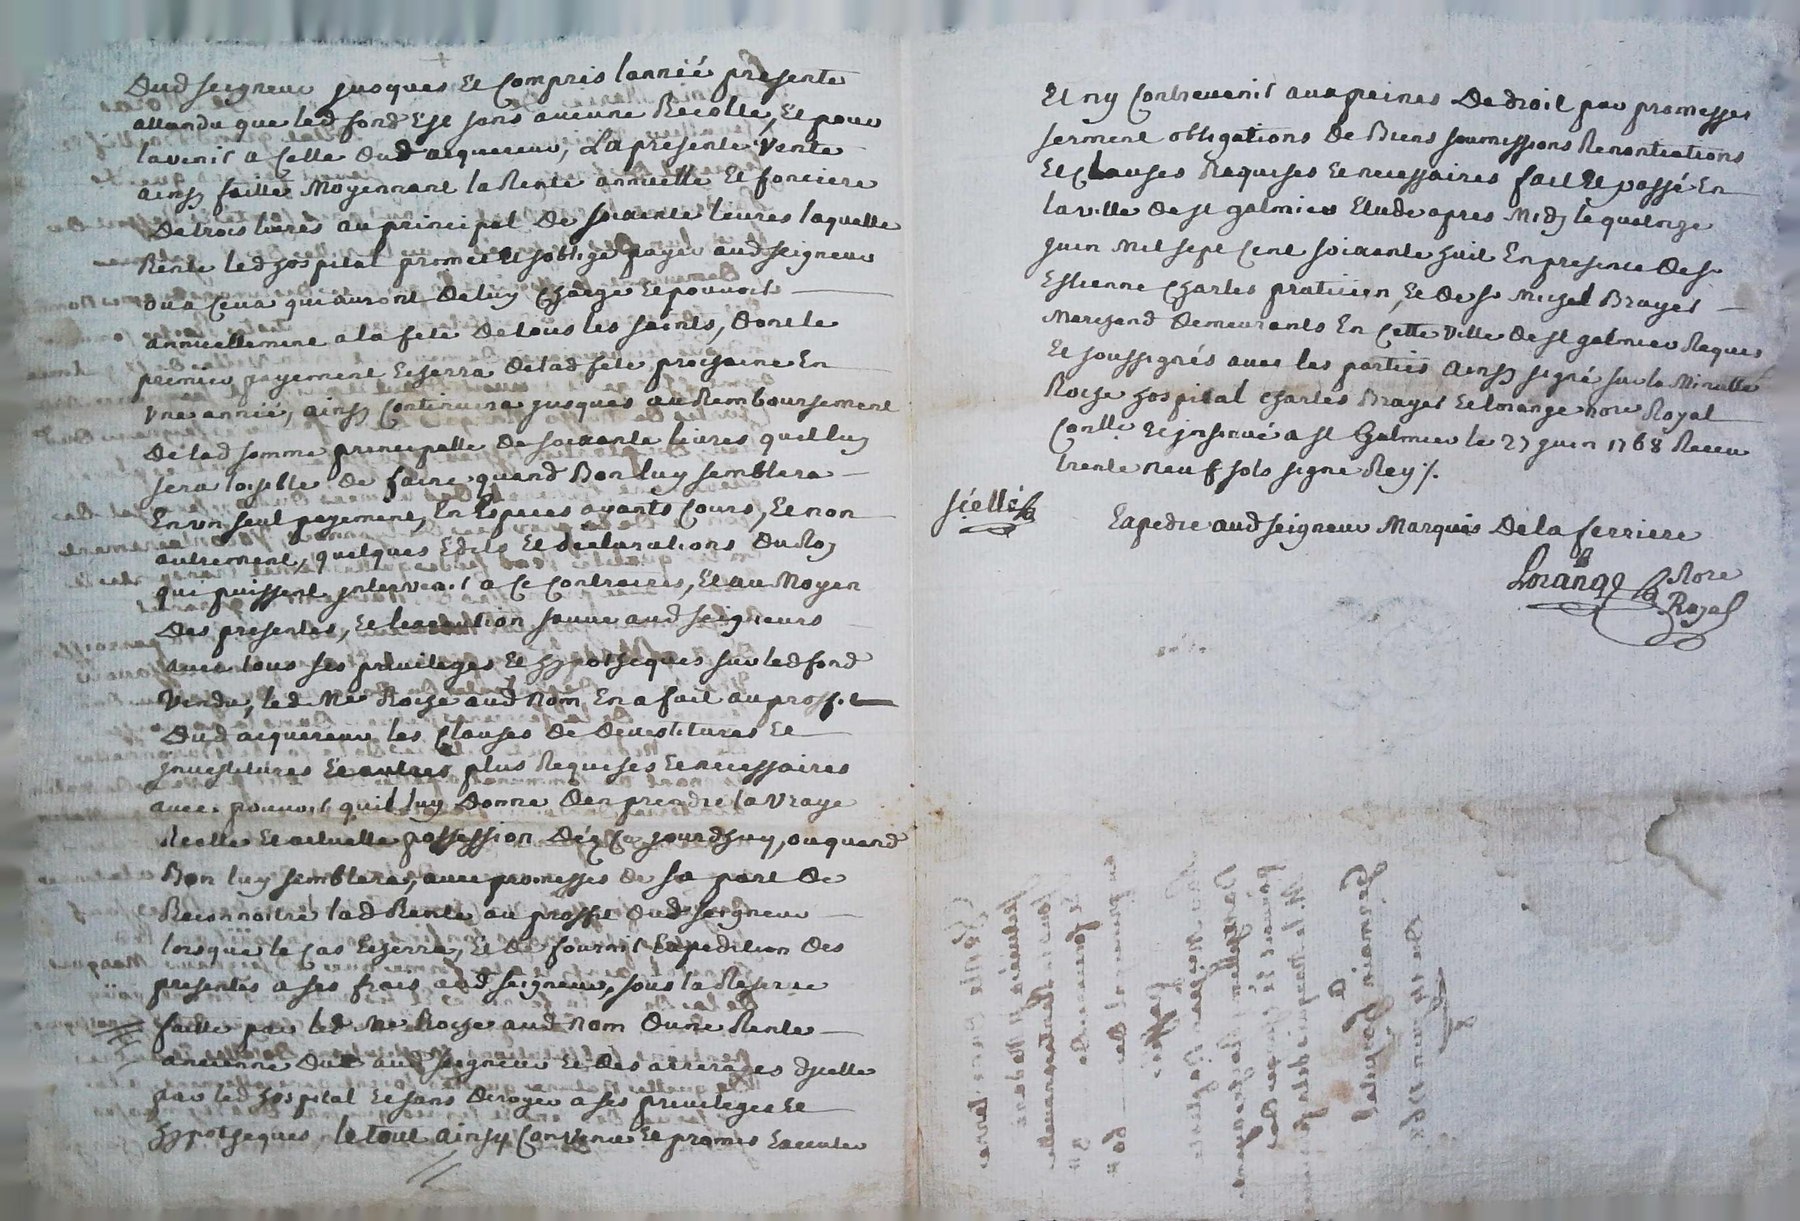 Dud seigneur jusques et compris lannié presente
attandu que led fond est sans aucune Recolte, et pour
lavenir a celle dud acquereur, La presente vente
ainsy faitte moyennant la Rente annuelle et fonciere
de trois livres au principal de soixante livres laquelle
Rente led hospital promet et soblige payer aud seigneur
ou a ceux qui auront de luy charge et pouvoir
annuellement a la fete de tous les saints, dont le
premier payement eserra de lad fete prochaine en
une année, ainsy continuera jusques au Remboursement
de lad somme principalle de soixante livres quil luy
sera loisible de faire quand Bon luy semblera
En un seul payement, En Especes ayants cours, Et non
autrement, quelques Edits et declarations du Roy
qui puissent intervenir a ce contraires, Et au moyen
des presentes, et lexecution sauve aud seigneurs
avec tous ses privileges et hypotheques sur led fond
vendu, led Me Roche aud nom En a fait au proffit
dud acquereur les clauses de devestitures et
investitures et autres plus Requises et necessaires
avec pouvoir quil luy donne den prendre la vraye
Reelle et actuelle possession dés ce jourdhuy, ou quand
Bon luy semblera, avec promesses de sa part de
Reconnoitre lad Rente au proffit dud seigneur
lorsque le cas eserra, et de fournir Expedition des
presentes a ses frais aud seigneur, sous la Reserve
faitte par led Me Roche aud nom dune Rente
ancienne due aud seigneur et des arrerages dicelle
par led hospital et sans deroger a ses privileges et
hypotheques, le tout ainsy convenu et promis Executer
Et ny contrevenir aux peines de droit par promesses
serment obligations de Biens soumissions Renontiations
Et clauses Requises et necessaires fait et passé En
la ville de st galmier Etude apres midy le quatorze
juin mil sept cent soixante huit En presence de sr
Estienne Charles praticien, et de sr Michel Brayet
Marchand demeurants En cette ville de st galmier Requis
Et soussignés avec les parties ainsy signé sur la Minutte
Roche hospital Charles Brayet et lorange nore Royal
Conller et insinué a st Galmier le 27 juin 1768 Receu
trente neuf sols signe Rey ./.
scellé
Expedié aud seigneur Marquis de la ferriere
Lorange Nore
Royal